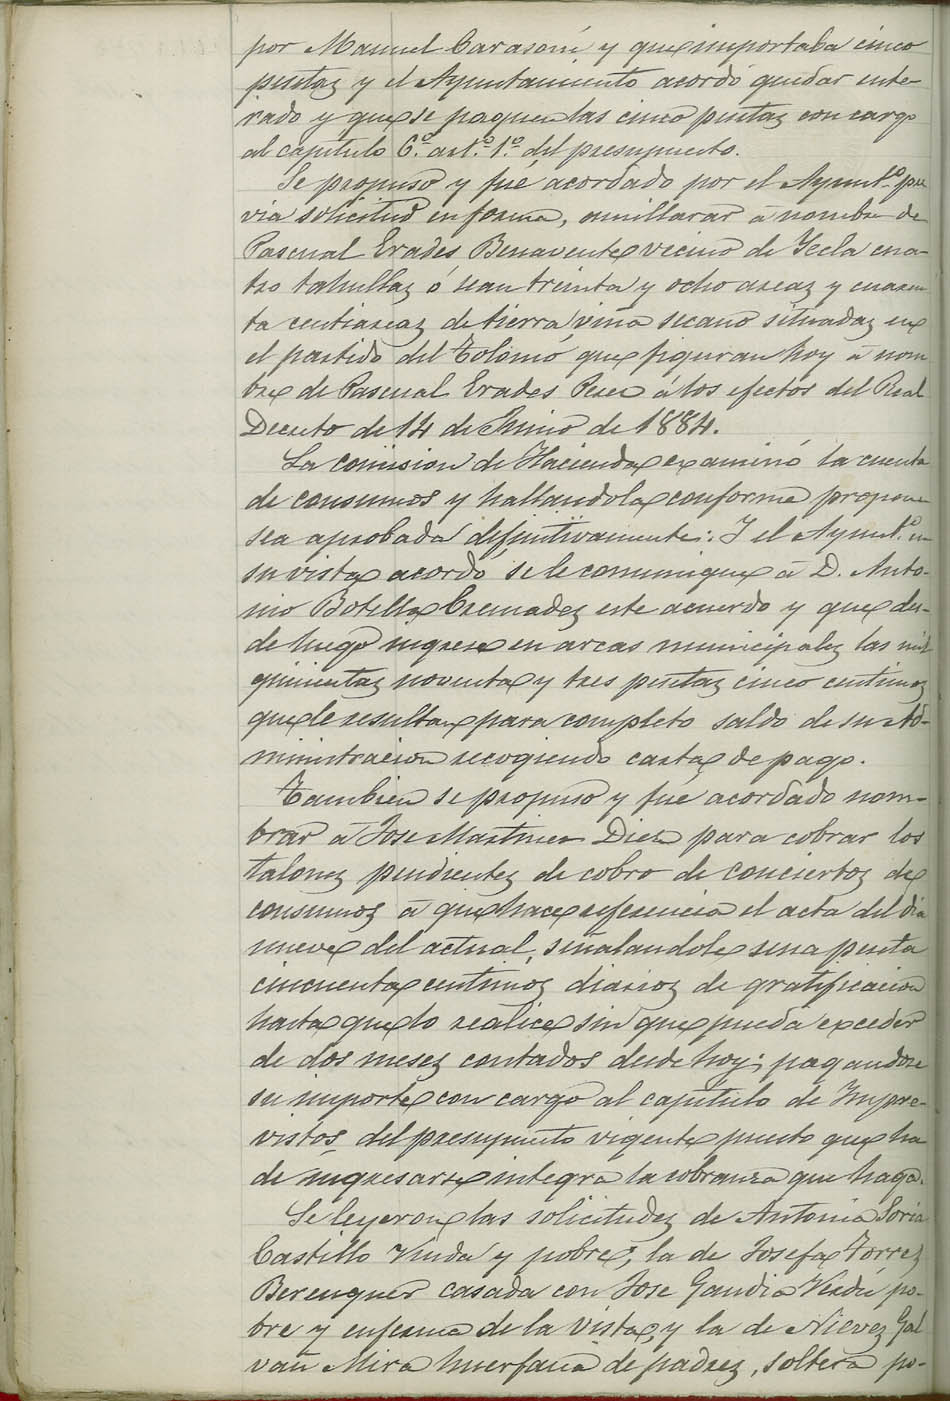 por Manuel Carasoni y que importaba cinco
pesetas y el Ayuntamiento acordó quedar ente-
rado y que se paguen las cinco pesetas con cargo
al capitulo 6.º art.º 1.º del presupuesto.
Se propuso y fué acordado por el Ayunt.º pre
via solicitud en forma, amillarar á nombre de
Pascual Erades Benavente vecino de Yecla cua-
tro tahullas ó sean treinta y ocho areas y cuaren
ta centiareas de tierra viña secano situadas en
el partido del Tolomó, que figuran hoy á nom
bre de Pascual Erades Perez á los efectos del Real
Decreto de 14 de Junio de 1884.
La comision de Hacienda examinó la cuenta
de consumos y hallandola conforme propone
sea aprobada definitivamente: Y el Ayunt.º en
su vista acordó se le comunique á D. Anto-
nio Botella Cremades este acuerdo y que des-
de luego ingrese en arcas municipales las mil
quinientas noventa y tres pesetas cinco centimos
que le resultan para completo saldo de su Ad-
ministracion recogiendo carta de pago.
Tambien se propuso y fue acordado nom-
brar á Jose Martinez Diez para cobrar los
talones pendientes de cobro de conciertos de
consumos á que hace referencia el acta del dia
nueve del actual, señalandole una peseta
cincuenta centimos diarios de gratificacion
hasta que lo realice sin que pueda exceder
de dos meses contados desde hoy; pagandose
su importe con cargo al capitulo de Impre-
vistos del presupuesto vigente puesto que ha
de ingresarse integra la cobranza que haga.
Se leyeron las solicitudes de Antonia Soria
Castillo Viuda y pobre, la de Josefa Torres
Berenguer casada con Jose Gandia Verdú po-
bre y enferma de la vista, y la de Nieves Gal
vañ Mira huerfana de padres, soltera po-